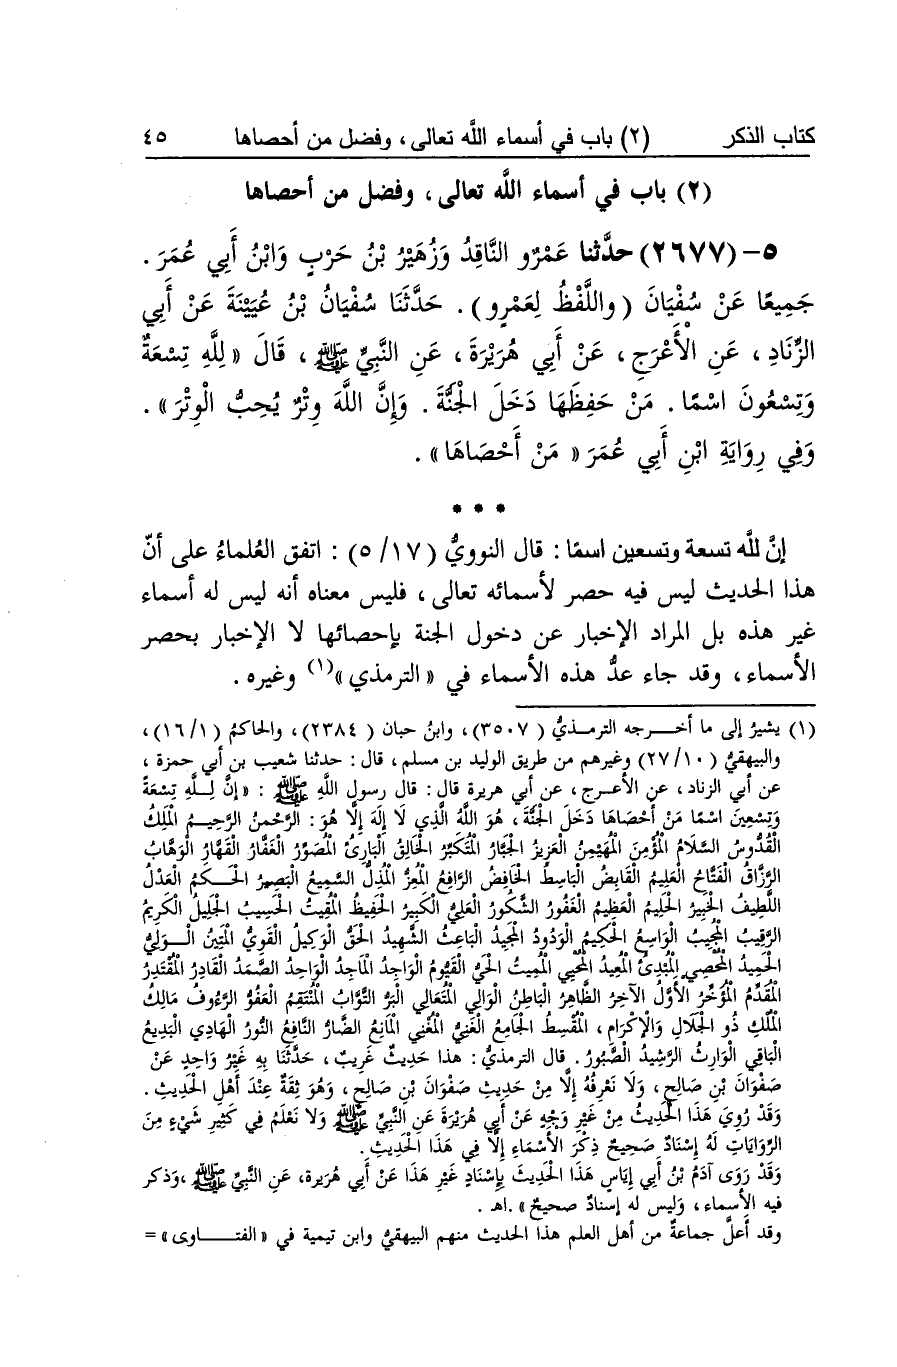 كتاب الذكر (٢) باب في أسماء اللَّه تعالى ، وفضل من أحصاها ٤٥
(٢) باب في أسماء اللَّه تعالى ، وفضل من أحصاها
٥- (٢٦٧٧) حدَّثنا عَمْرٌو النَّاقِدُ وَزُهَيْرُ بْنُ حَرْبٍ وَابْنُ أَبِي عُمَرَ .
جَمِيعًا عَنْ سُفْيَانَ ( واللَّفْظُ لِعَمْرٍو ) . حَدَّثَنَا سُفْيَانُ بْنُ عُيَيْنَةَ عَنْ أَبِي
الزِّنَادِ ، عَنِ الْأَعْرَجِ ، عَنْ أَبِي هُرَيْرَةَ ، عَنِ النَّبِيِّ ﷺ ، قَالَ « لِلَّهِ تِسْعَةٌ
وَتِسْعُونَ اسْمًا . مَنْ حَفِظَهَا دَخَلَ الْجَنَّةَ . وَإِنَّ اللَّهَ وِتْرٌ يُحِبُّ الْوِتْرَ » .
وَفِي رِوَايَةِ ابْنِ أَبِي عُمَرَ « مَنْ أَحْصَاهَا » .
* * *
إنَّ للَّه تسعة وتسعين اسمًا : قال النوويُّ (١٧ /٥) : اتفق العُلماءُ على أنّ
هذا الحديث ليس فيه حصر لأسمائه تعالى ، فليس معناه أنه ليس له أسماء
غير هذه بل المراد الإخبار عن دخول الجنة بإحصائها لا الإخبار بحصر
الأسماء ، وقد جاء عدُّ هذه الأسماء في « الترمذي »(١) وغيره .
(١) يشيرُ إلى ما أخـرجه الترمـذيُّ ( ٣٥٠٧)، وابنُ حبان ( ٢٣٨٤)، والحاكمُ (١ /١٦) ،
والبيهقيُّ ( ١٠ /٢٧) وغيرهم من طريق الوليد بن مسلم ، قال : حدثنا شعيب بن أبي حمزة ،
عن أبي الزناد ، عن الأعـرج ، عن أبي هريرة قال : قال رسول اللَّهِ ﷺ : « إنَّ لِـلَّهِ تِسْعَةً
وَتِسْعِينَ اسْمًا مَنْ أَحْصَاهَا دَخَلَ الْجَنَّةَ ، هُوَ اللَّهُ الَّذِي لَا إِلَهَ إِلَّا هُوَ : الرَّحْمَنُ الرَّحِيـمُ الْمَلِكُ
الْقُدُّوسُ السَّلَامُ الْمُؤْمِنَ الْمُهَيْمِنُ الْعَزِيزُ الْجَبَّارُ الْمُتَكَبِّرُ الْخَالِقُ الْبَارِئُ الْمُصَوِّرُ الْغَفَّارُ الْقَهَّارُ الْوَهَّابُ
الرَّزَّاقُ الْفَتَّاحُ الْعَلِيمُ الْقَابِضُ الْبَاسِطُ الْخَافِضُ الرَّافِعُ الْمُعِزُّ الْمُذِلُّ السَّمِيعُ الْبَصِيرُ الْحَـكَمُ الْعَدْلُ
اللَّطِيفُ الْخَبِيرُ الْحَلِيمُ الْعَظِيمُ الْغَفُورُ الشَّكُورُ الْعَلِيُّ الْكَبِيرُ الْحَفِيظُ الْمُقِيتُ الْحَسِيبُ الْجَلِيلُ الْكَرِيمُ
الرَّقِيبُ الْمُجِيبُ الْوَاسِعُ الْحَكِيمُ الْوَدُودُ الْمَجِيدُ الْبَاعِثُ الشَّهِيدُ الْحَقُّ الْوَكِيلُ الْقَوِيُّ الْمَتِينُ الْـوَلِيُّ
الْحَمِيدُ الْمُحْصِي الْمُبْدِئُ الْمُعِيدُ الْمُحْيِي الْمُمِيتُ الْحَيُّ الْقَيُّومُ الْوَاجِدُ الْمَاجِدُ الْوَاحِدُ الصَّمَدُ الْقَادِرُ الْمُقْتَدِرُ
الْمُقَدِّمُ الْمُؤَخِّرُ الْأَوَّلُ الْآخِرُ الظَّاهِرُ الْبَاطِنُ الْوَالِي الْمُتَعَالِي الْبَرُّ التَّوَّابُ الْمُنْتَقِمُ الْعَفُوُّ الرَّءُوفُ مَالِكُ
الْمُلْكِ ذُو الْجَلَالِ وَالْإِكْرَامِ ، الْمُقْسِطُ الْجَامِعُ الْغَنِيُّ الْمُغْنِي الْمَانِعُ الضَّارُّ النَّافِعُ النُّورُ الْهَادِي الْبَدِيعُ
الْبَاقِي الْوَارِثُ الرَّشِيدُ الصَّبُورُ . قال الترمذيُّ : هذا حَدِيثٌ غَرِيبٌ ، حَدَّثَنَا بِهِ غَيْرُ وَاحِدٍ عَنْ
صَفْوَانَ بْنِ صَالِحٍ ، وَلَا نَعْرِفُهُ إِلَّا مِنْ حَدِيثِ صَفْوَانَ بْنِ صَالِحٍ ، وَهُوَ ثِقَةٌ عِنْدَ أَهْلِ الْحَدِيثِ .
وَقَدْ رُوِيَ هَذَا الْحَدِيثُ مِنْ غَيْرِ وَجْهٍ عَنْ أَبِي هُرَيْرَةَ عَنِ النَّبِيِّ ﷺ وَلَا نَعْلَمُ فِي كَثِيرِ شَيْءٍ مِنَ
الرِّوَايَاتِ لَهُ إِسْنَادٌ صَحِيحٌ ذِكْرَ الْأَسْمَاءِ إِلَّا فِي هَذَا الْحَدِيثِ .
وَقَدْ رَوَى آدَمُ بْنُ أَبِي إِيَاسٍ هَذَا الْحَدِيثَ بِإِسْنَادٍ غَيْرِ هَذَا عَنْ أَبِي هُرَيرة، عَنِ النَّبِيِّ ﷺ ،وَذكر
فيه الأسماء ، وَليس له إسنادٌ صحيحٌ » .اهـ .
وقد أعلَّ جماعةٌ من أهل العلم هذا الحديث منهم البيهقيُّ وابن تيمية في « الفتـاوى » =